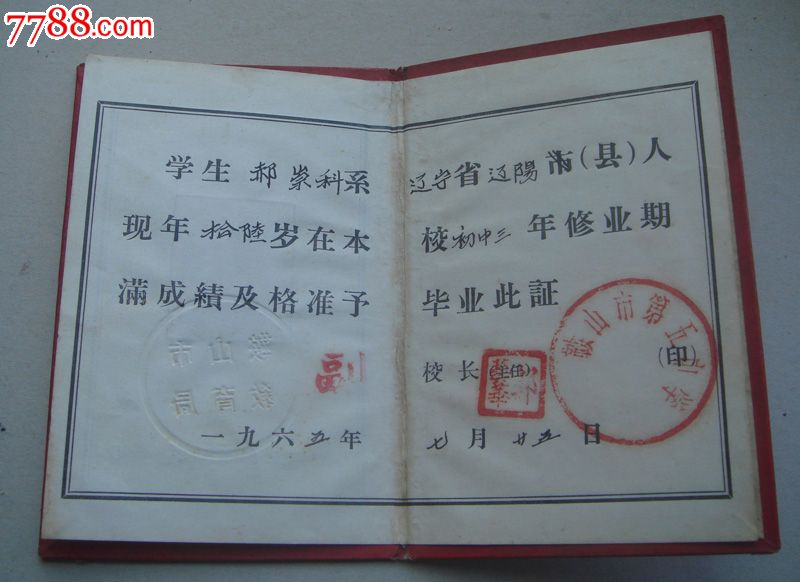 7788.com
学生郝崇科系辽宁省辽陽市(县)人
现年拾陸岁在本校初中三年修业期
满成績及格准予毕业此証
校长(主任)(印)
一九六五年七月廿五日
鞍山市第五中学
鞍山市
教育局